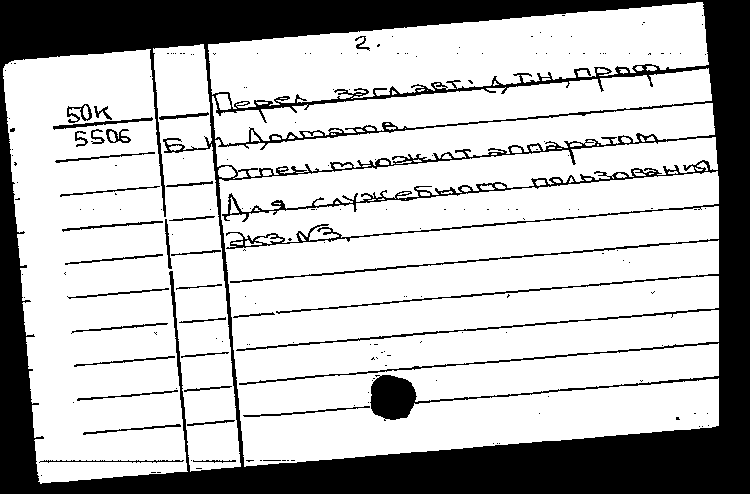 2.
50К
5506
Перед загл. авт.: д.т.н., проф.
Б. И. Долматов.
Отпеч. множит. аппаратом
Для служебного пользования
Экз. №3.